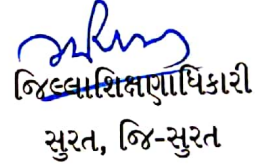 જિલ્લાશિક્ષણાધિકારી
સુરત, જિ-સુરત